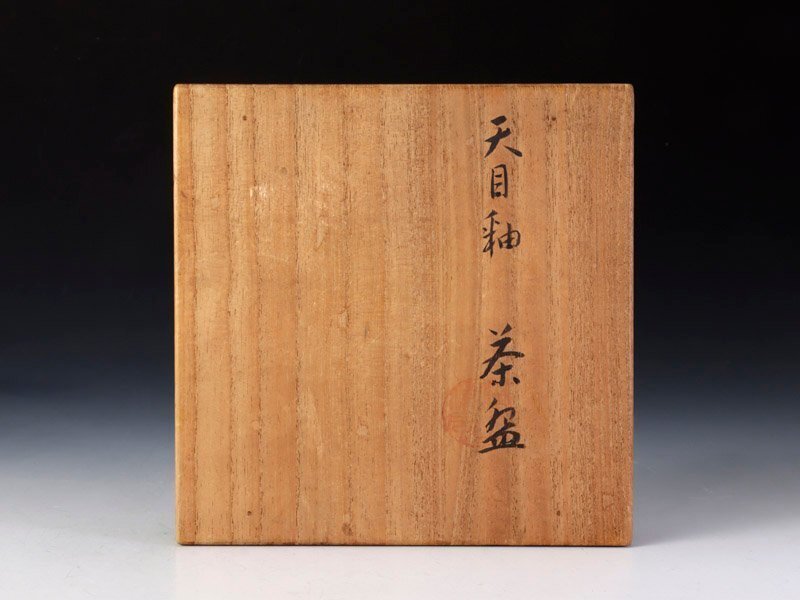 天目釉 茶盌